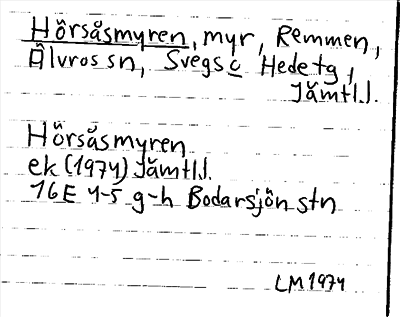 Hörsåsmyren, myr, Remmen,
Älvros sn, Svegs o Hede tg,
Jämtl.l.
Hörsåsmyren
ek (1974) Jämtl.l.
16E 4-5 g-h Bodarsjön stn
LM 1974